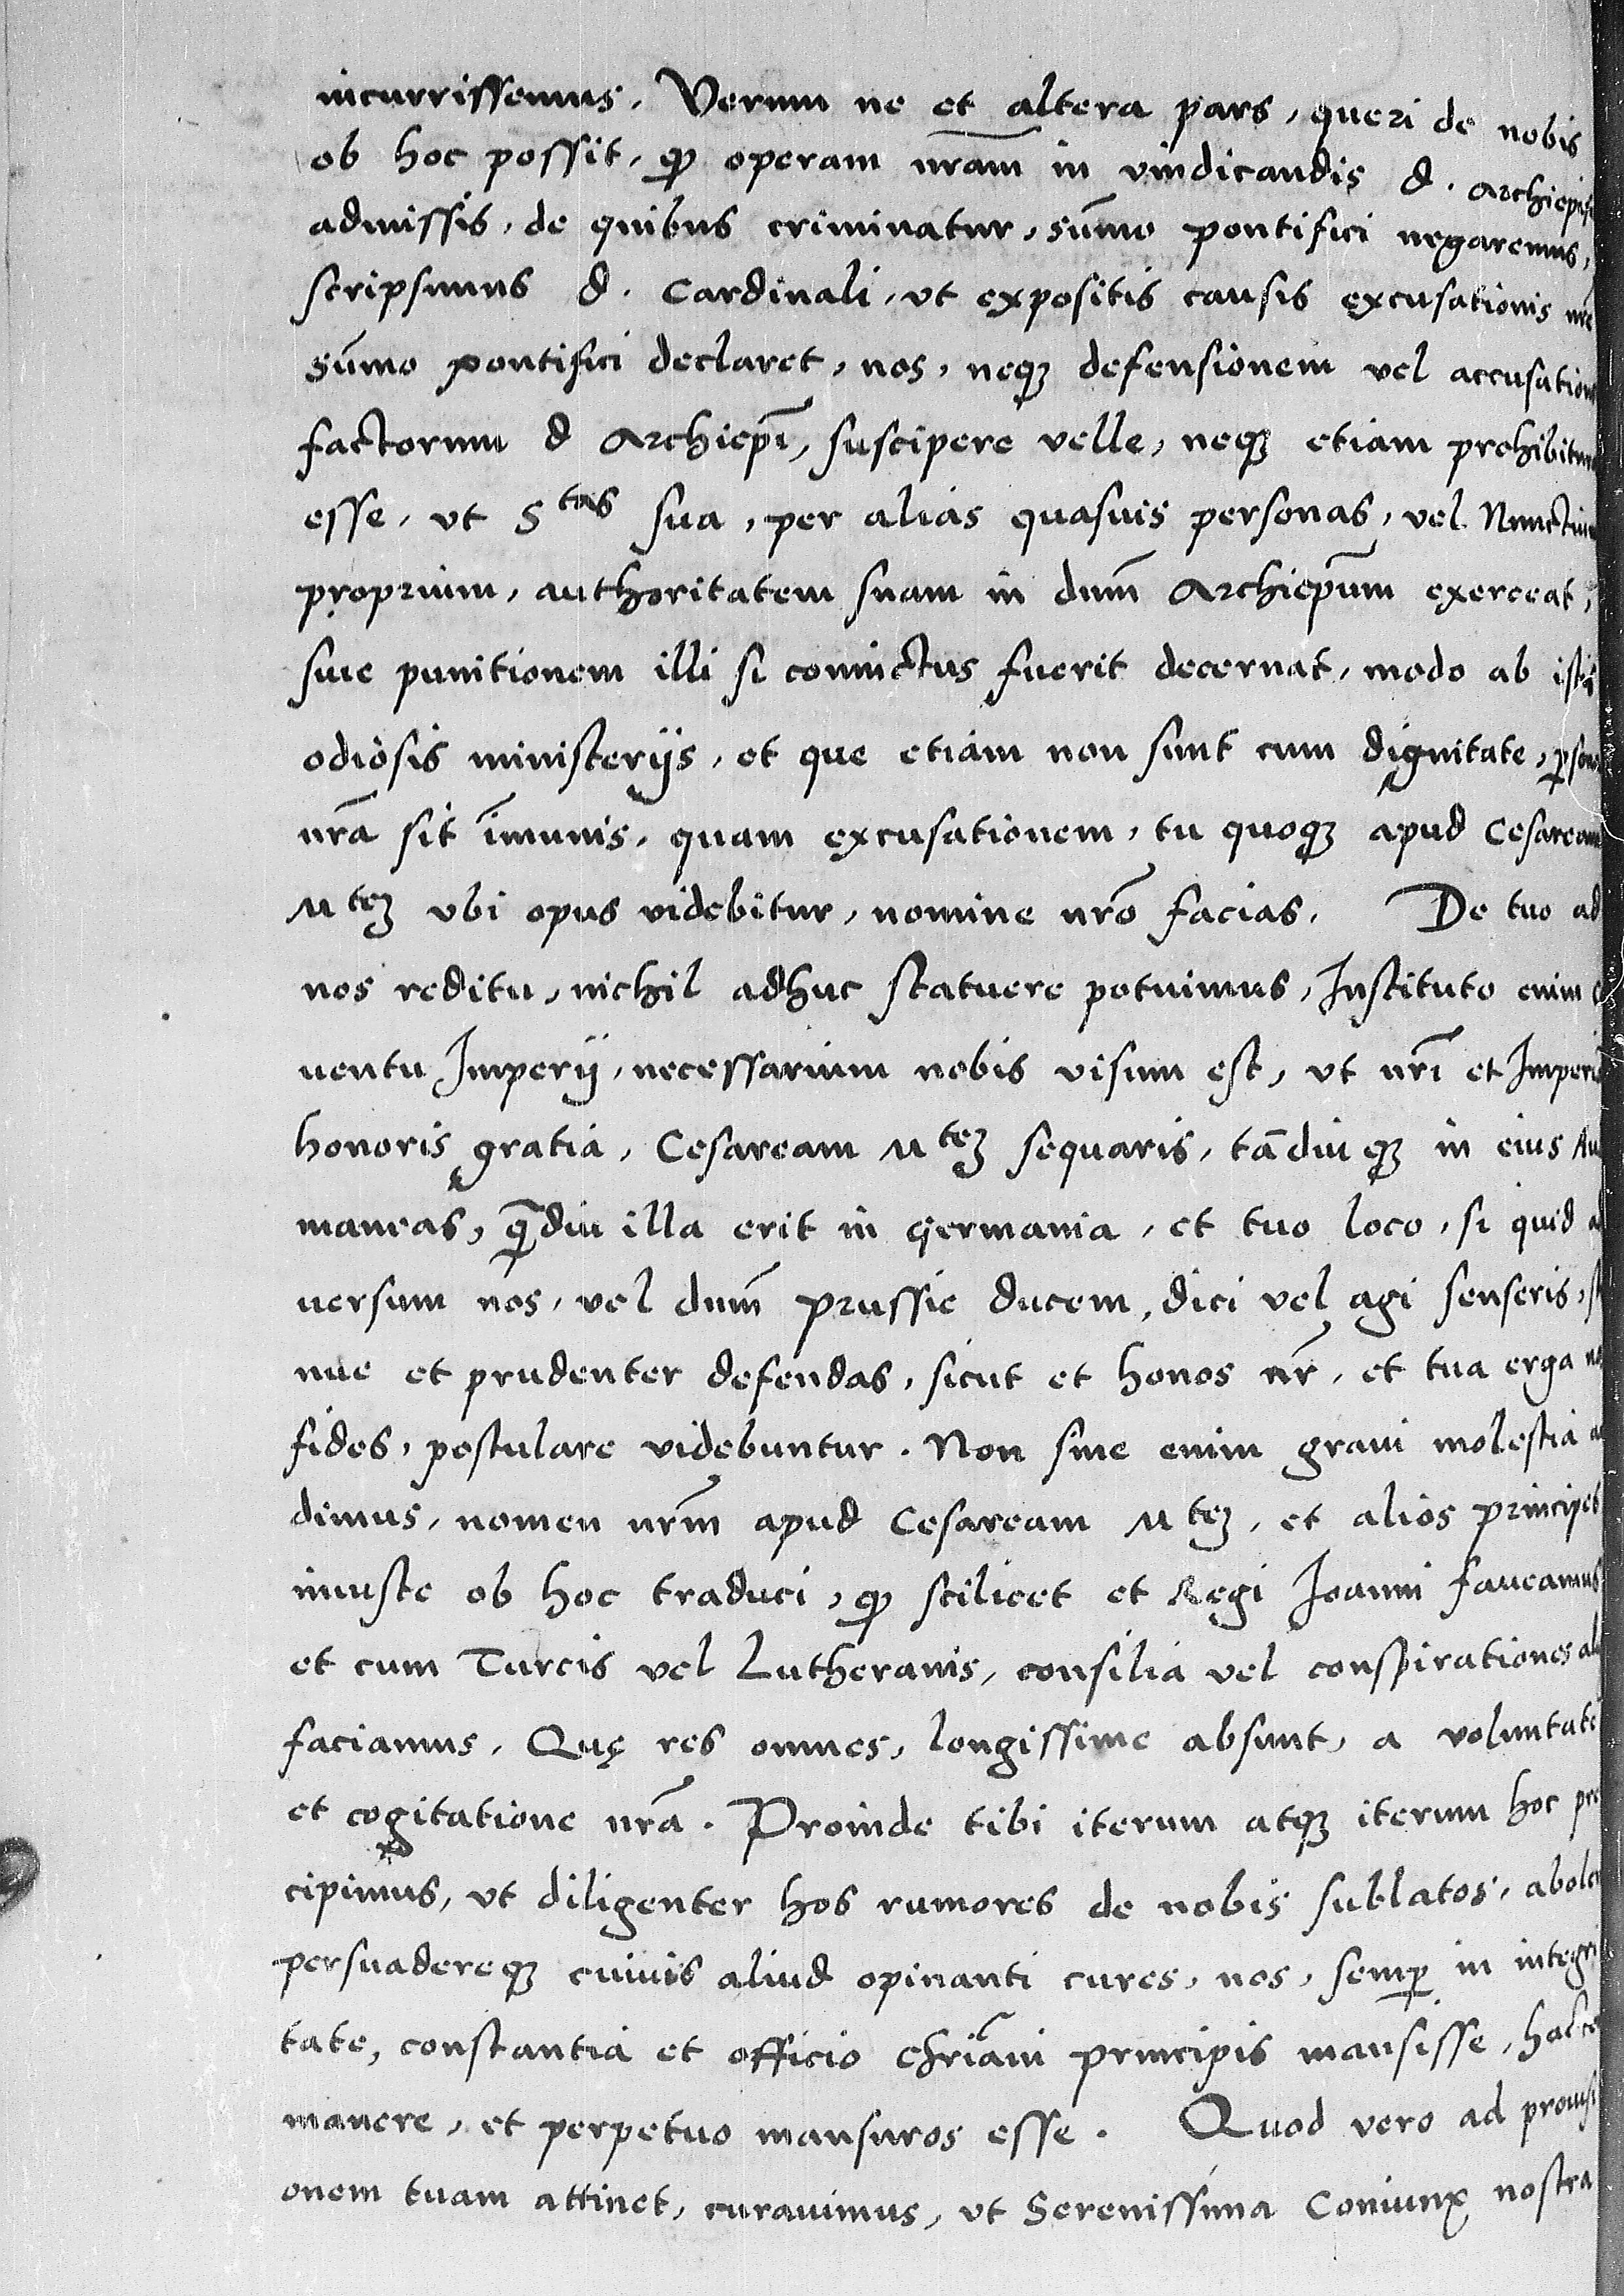 incurrissemus. Verum ne et altera pars, queri de nobis
ob hoc possit, qp operam nram in vindicandis d. Archiepi
admissis, de quibus criminatur, sumo pontifici negaremus,
scripsimus d. Cardinali, vt expositis causis excusationis nre
sumo pontifici declaret, nos, neqз defensionem vel accusation
factorum d Archiepi, suscipere velle, neqз etiam prohibitur
esse, vt Stas sua, per alias quasuis personas, vel Nunctium
proprium, authoritatem suam in dnm Archiepum exerceat,
siue punitionem illi si conuictus fuerit decernat, modo ab istis
odiosis ministerijs, et que etiam non sunt cum dignitate, psona
nra sit imunis, quam excusationem, tu quoqз apud Cesaream
Mteз vbi opus videbitur, nomine nro facias. De tuo ad
nos reditu, nichil adhuc statuere potuimus, Instituto enim
uentu Imperij, necessarium nobis visum est, vt nri et Imperij
honoris gratia, Cesaream Mteз sequaris, tadiu qз in eius Au
maneas, qdiu illa erit in Germania, et tuo loco, si quid ad
uersum nos, vel dnm prussie ducem, dici vel agi senseris, st
nue et prudenter defendas, sicut et honos nr, et tua erga nos
fides, postulare videbuntur. Non sine enim graui molestia au
dimus, nomen nrm apud Cesaream Mteз, et alios principes
iniuste ob hoc traduci, qp scilicet et Regi Joanni faueamus
et cum Turcis vel Lutheranis, consilia vel conspirationes ali
faciamus. Quę res omnes, longissime absunt, a voluntate
et cogitatione nra. Proinde tibi iterum atqз iterum hoc pre
cipimus, vt diligenter hos rumores de nobis sublatos, abole
persuadereqз cuiuis aliud opinanti cures, nos, semp in integri
tate, constantia et officio chriani principis mansisse, hacte
manere, et perpetuo mansuros esse. Quod vero ad prouisi
onem tuam attinet, curauimus, vt Serenissima Coniunx nostra